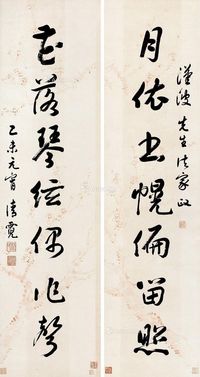 漢波先生法家政
月依書幌偏留照
花落琴絃偶作聲
乙未元宵